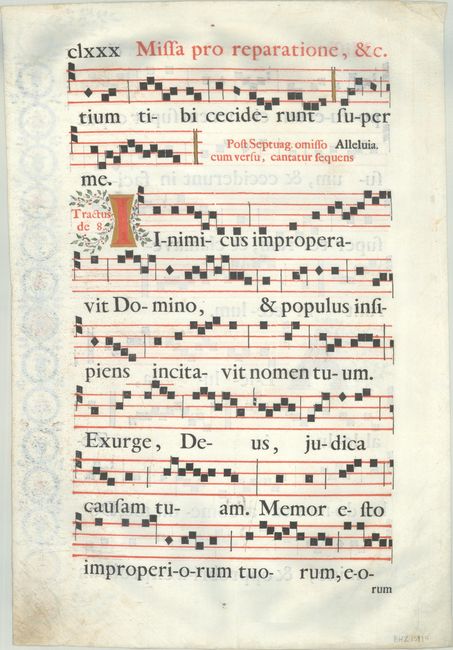 clxxx Missa pro reparatione, &c.
tium ti- bi cecide- runt su-per
Post Septuag. omisso Alleluia.
cum versu, cantatur sequens
me.
Tractus
de 8.
I-nimi- cus impropera-
vit Do- mino, & populus insi-
piens incita- vit nomen tu- um.
Exurge, De- us, ju-dica
causam tu- am. Memor e- sto
improperi-o-rum tuo- rum, e-o-
rum